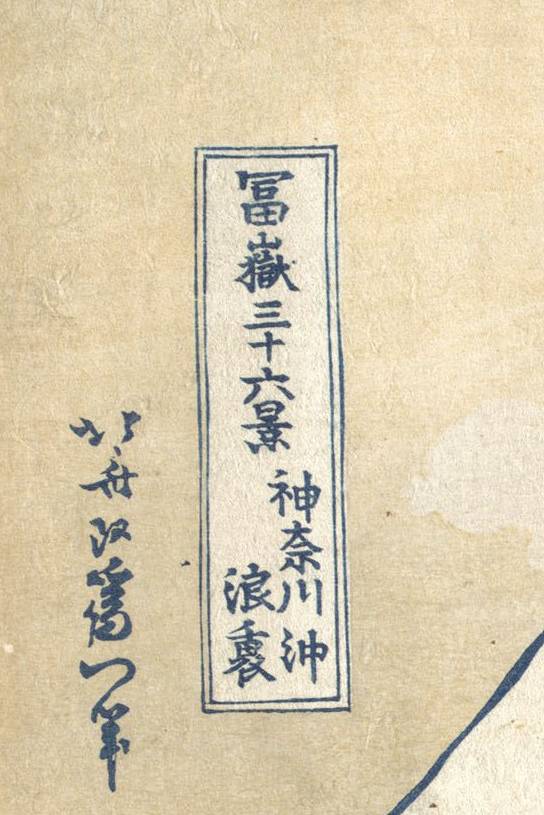 冨嶽三十六景
神奈川沖
浪裏
北斎改為一筆